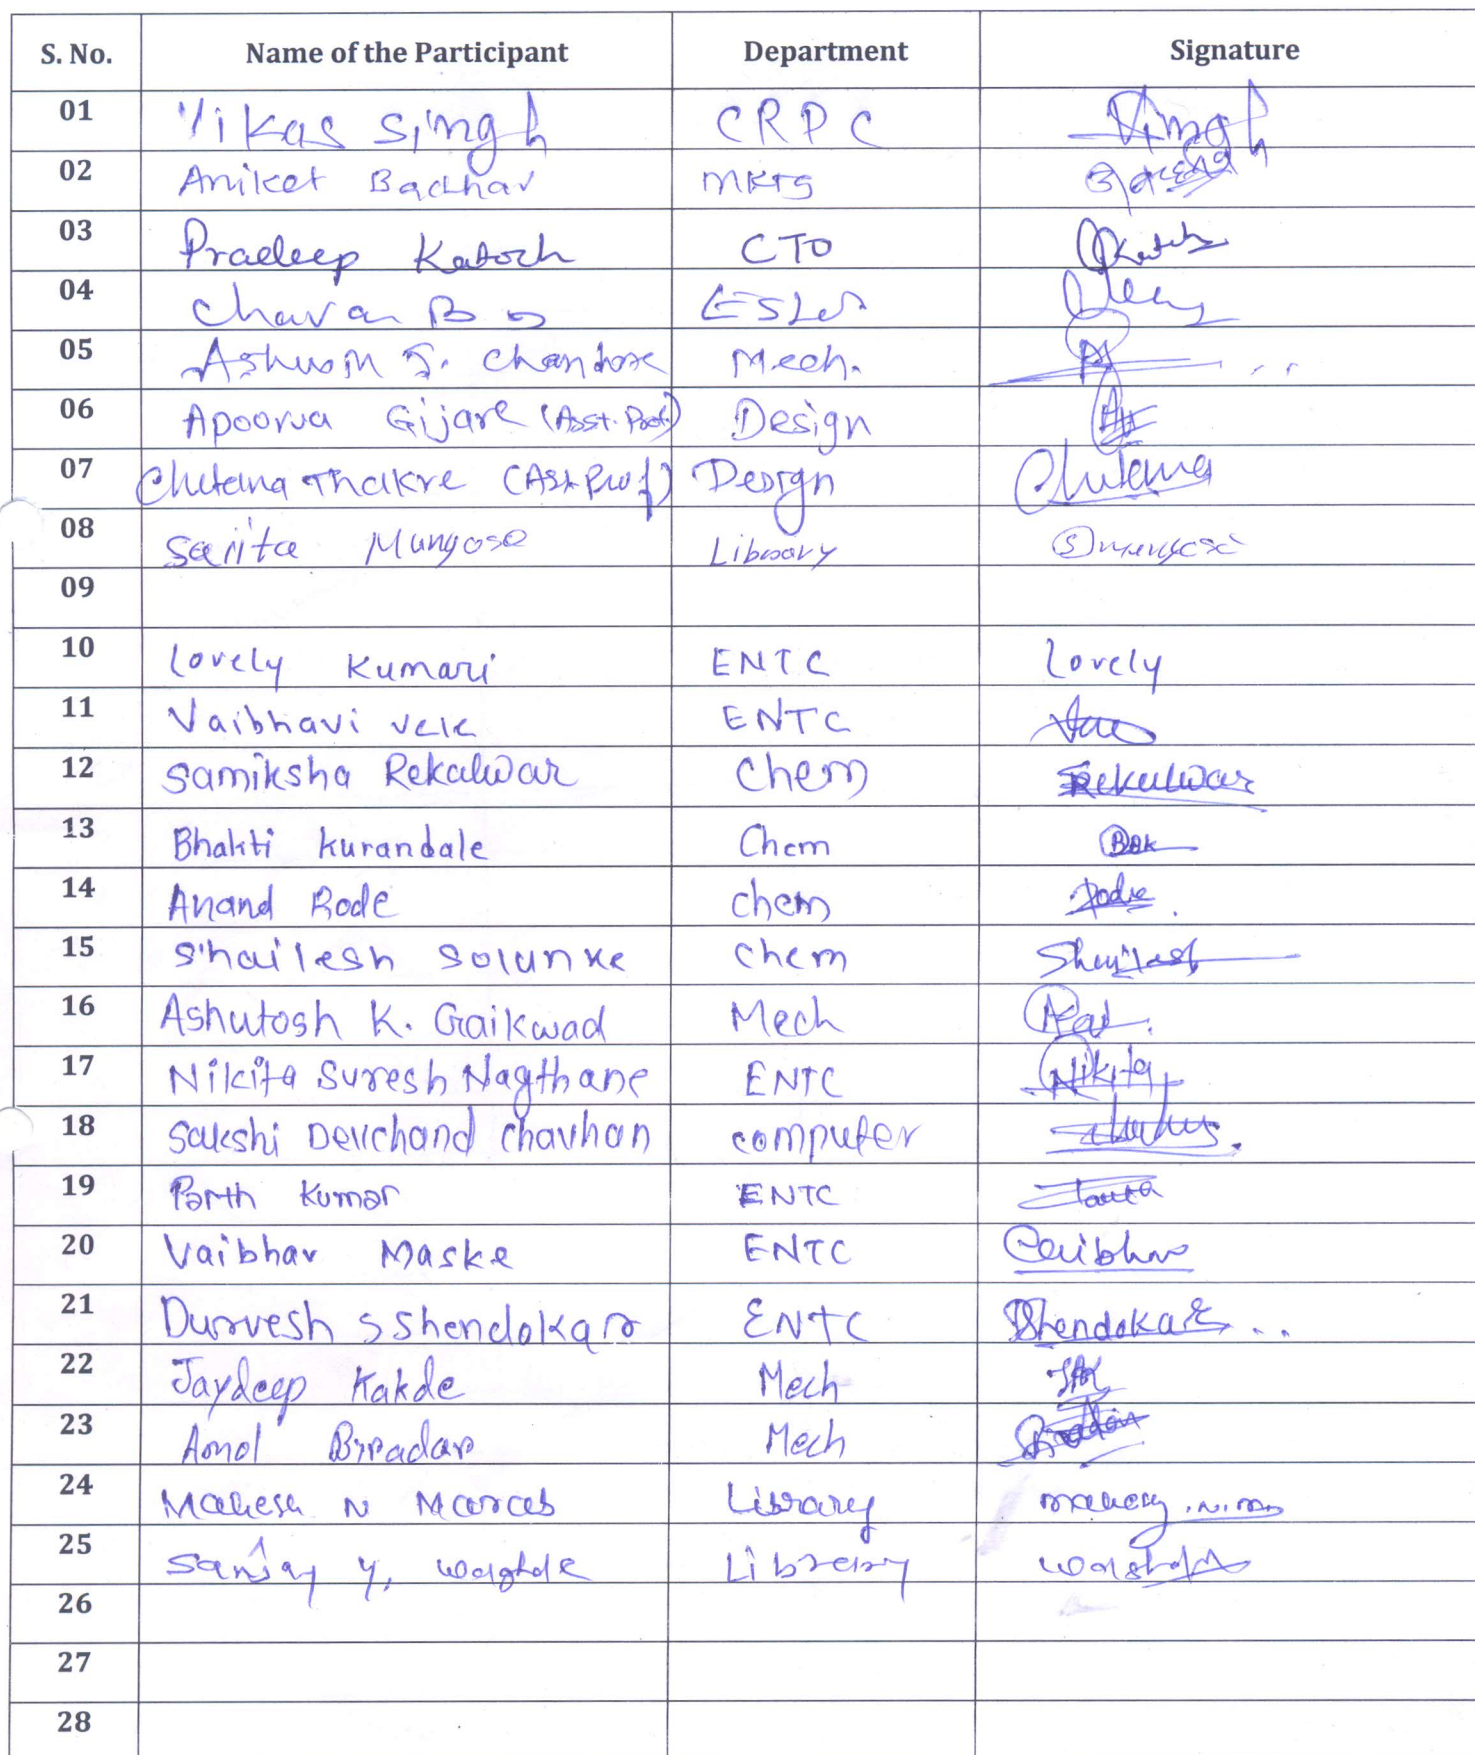 S. No. Name of the Participant Department Signature
01 Vikas Singh CRPC Singh
02 Aniket Badhav MKTG
03 Pradeep Katoch CTO
04 Chavan B
05 S. Chandore Mech.
06 Apoorva Gijare (Asst. Prof) Design
07 Chetana Thakre (Asst Prof) Design Chetana
08 Sarita Mungase Library
09
10 Lovely Kumari ENTC Lovely
11 Vaibhavi Vele ENTC
12 Samiksha Rekalwar Chem Rekalwar
13 Bhakti Kurandale Chem BBK
14 Anand Rode chem Rode
15 Shailesh Solunke Chem Shailesh
16 Ashutosh K. Gaikwad Mech
17 Nikita Suresh Nagthane ENTC Nikita
18 Sakshi Devchand Chavhan computer
19 Parth Kumar ENTC
20 Vaibhav Maske ENTC Vaibhav
21 Durvesh S Shendokar ENTC DShendokar
22 Jaydeep Kakde Mech
23 Amol Biradar Mech Biradar
24 Mahesh N Library
25 Sanjay Y. Waghde Library
26
27
28